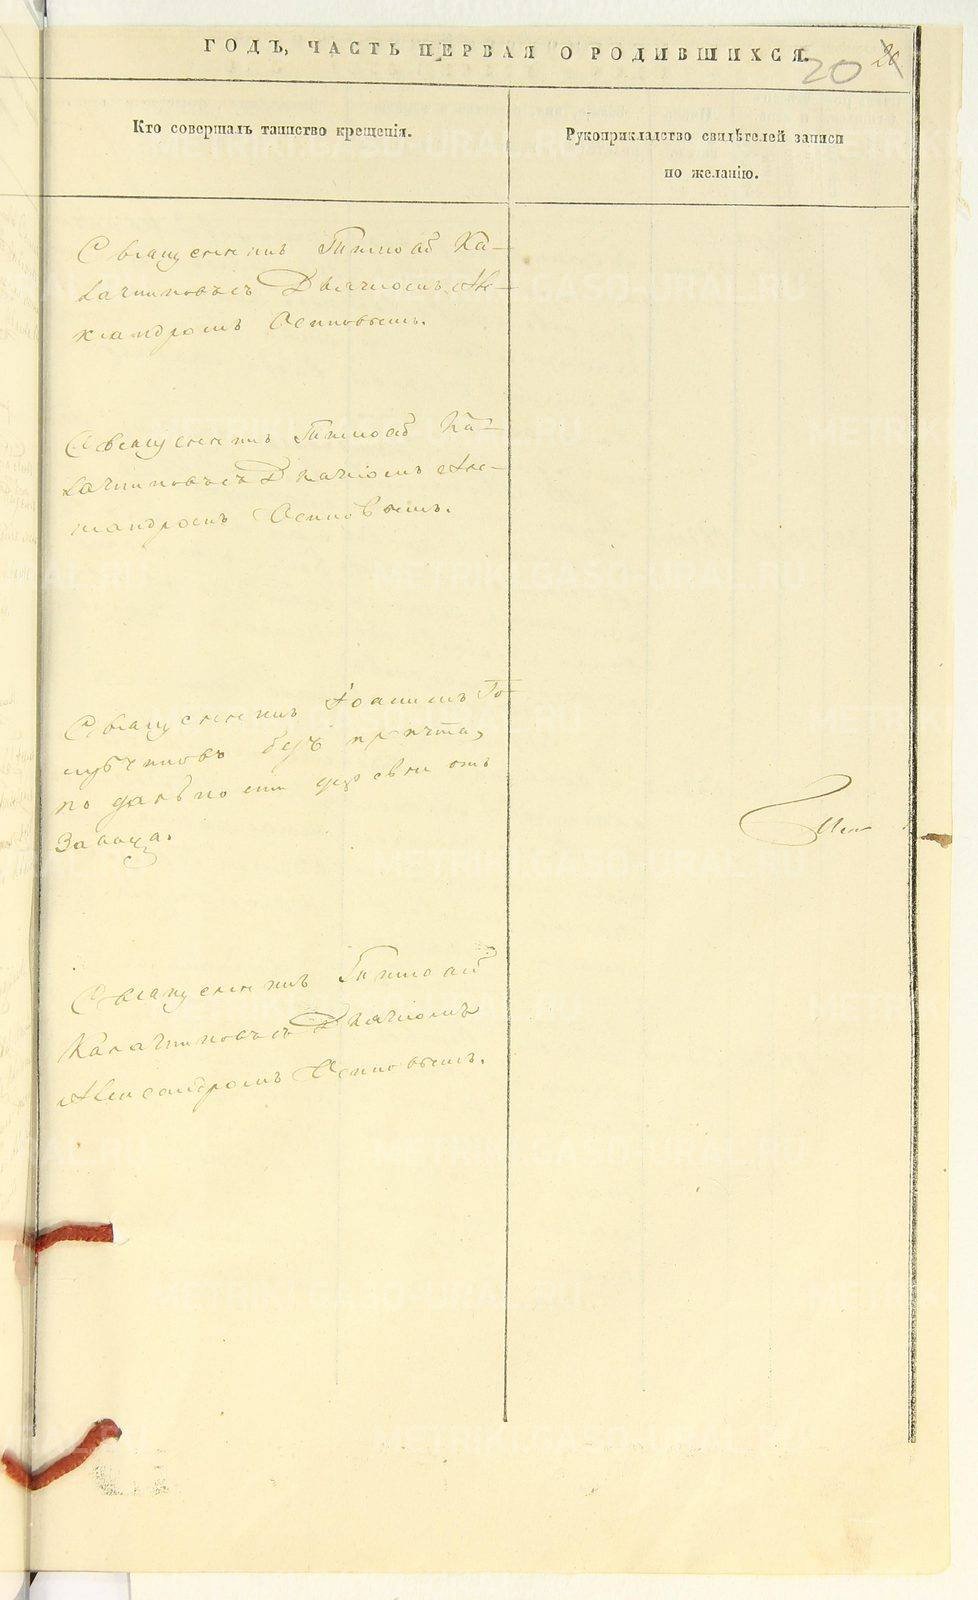 ГОДЪ, ЧАСТЬ ПЕРВАЯ О РОДИВШИХСЯ.
20 20
Кто совершалъ таинство крещенія.
Рукоприкладство свидѣтелей записи
по желанію.
Священникъ Тимоѳей Ка-
лачниковъ съ Дьячкомъ Але-
ксандромъ Осиповымъ.
Священникъ Тимоѳей Ка-
лачниковъ съ Дьячкомъ Але-
ксандромъ Осиповымъ.
Священникъ Іоаннъ Го-
лубчиковъ безъ причта,
по дальности деревни отъ
Завода.
Священникъ Тимоѳей
Калачниковъ съ Дьячкомъ
Александромъ Осиповымъ.
METRIKI.GASO-URAL.RU